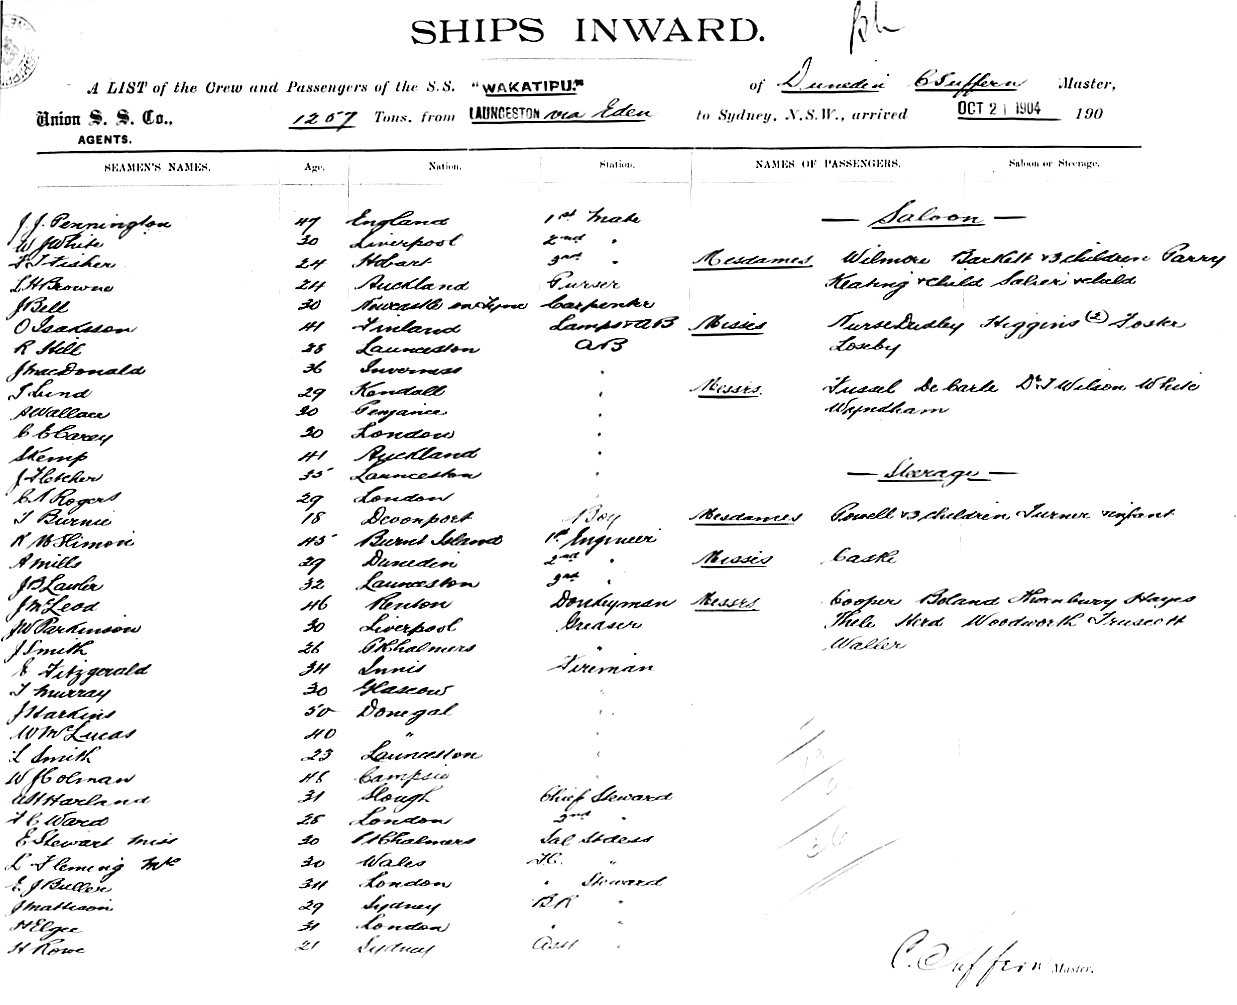 SHIPS INWARD.
A LIST of the Crew and Passengers of the S.S. "WAKATIPU." of Dunedin C Suffern Master,
Union S. S. Co., 1257 Tons, from LAUNCESTON via Eden to Sydney, N.S.W., arrived OCT 21 1904 190
AGENTS.
SEAMEN'S NAMES. Age. Nation. Station. NAMES OF PASSENGERS. Saloon or Steerage.
J. J. Pennington 47 England 1st Mate — Saloon —
W J White 30 Liverpool 2nd "
F J Fisher 24 Hobart 3rd " Mesdames Wilmore Barkett & 3 children Parry
L H Browne 24 Auckland Purser Keating & child Salier & child
J Bell 30 Newcastle on Tyne Carpenter
O Isaksson 41 Finland Lamps & AB Misses Nurse Dudley Higgins (2) Foster
R Hill 28 Launceston AB Loseby
J MacDonald 36 Inverness "
T Lund 29 Kendall " Messrs. Fussel De Carle Dr. J Wilson White
A Wallace 20 Penzance " Wyndham
C E Carey 30 London "
S Kemp 41 Auckland "
J Fletcher 35 Launceston " — Steerage —
C A Rogers 29 London "
T Burnie 18 Devonport Boy Mesdames Powell & 3 children Turner & infant
R McSlimon 45 Burnt Island 1st Engineer
A Mills 29 Dunedin 2nd " Misses Caske
J B Lawler 32 Launceston 3rd "
J McLeod 46 Renton Donkeyman Messrs Cooper Boland Thornbury Hayes
J W Parkinson 30 Liverpool Greaser Thele Herd Woodworth Truscott
J Smith 26 Pt Chalmers " Waller
E Fitzgerald 34 Innis Fireman
T Murray 30 Glascow "
J Harkins 50 Donegal "
W McLucas 40 " "
L Smith 23 Launceston "
W J Colman 48 Campsie "
A H Harland 31 Slough Chief Steward
F C Ward 28 London 2nd "
E Stewart Miss 30 Pt Chalmers Sal Stdess
L Fleming Mrs 30 Wales F.C. "
E J Buller 34 London " Steward
J Mattison 29 Sydney BR "
H Elgee 31 London " "
H Rowe 21 Sydney Asst "
36
C. Suffern Master.